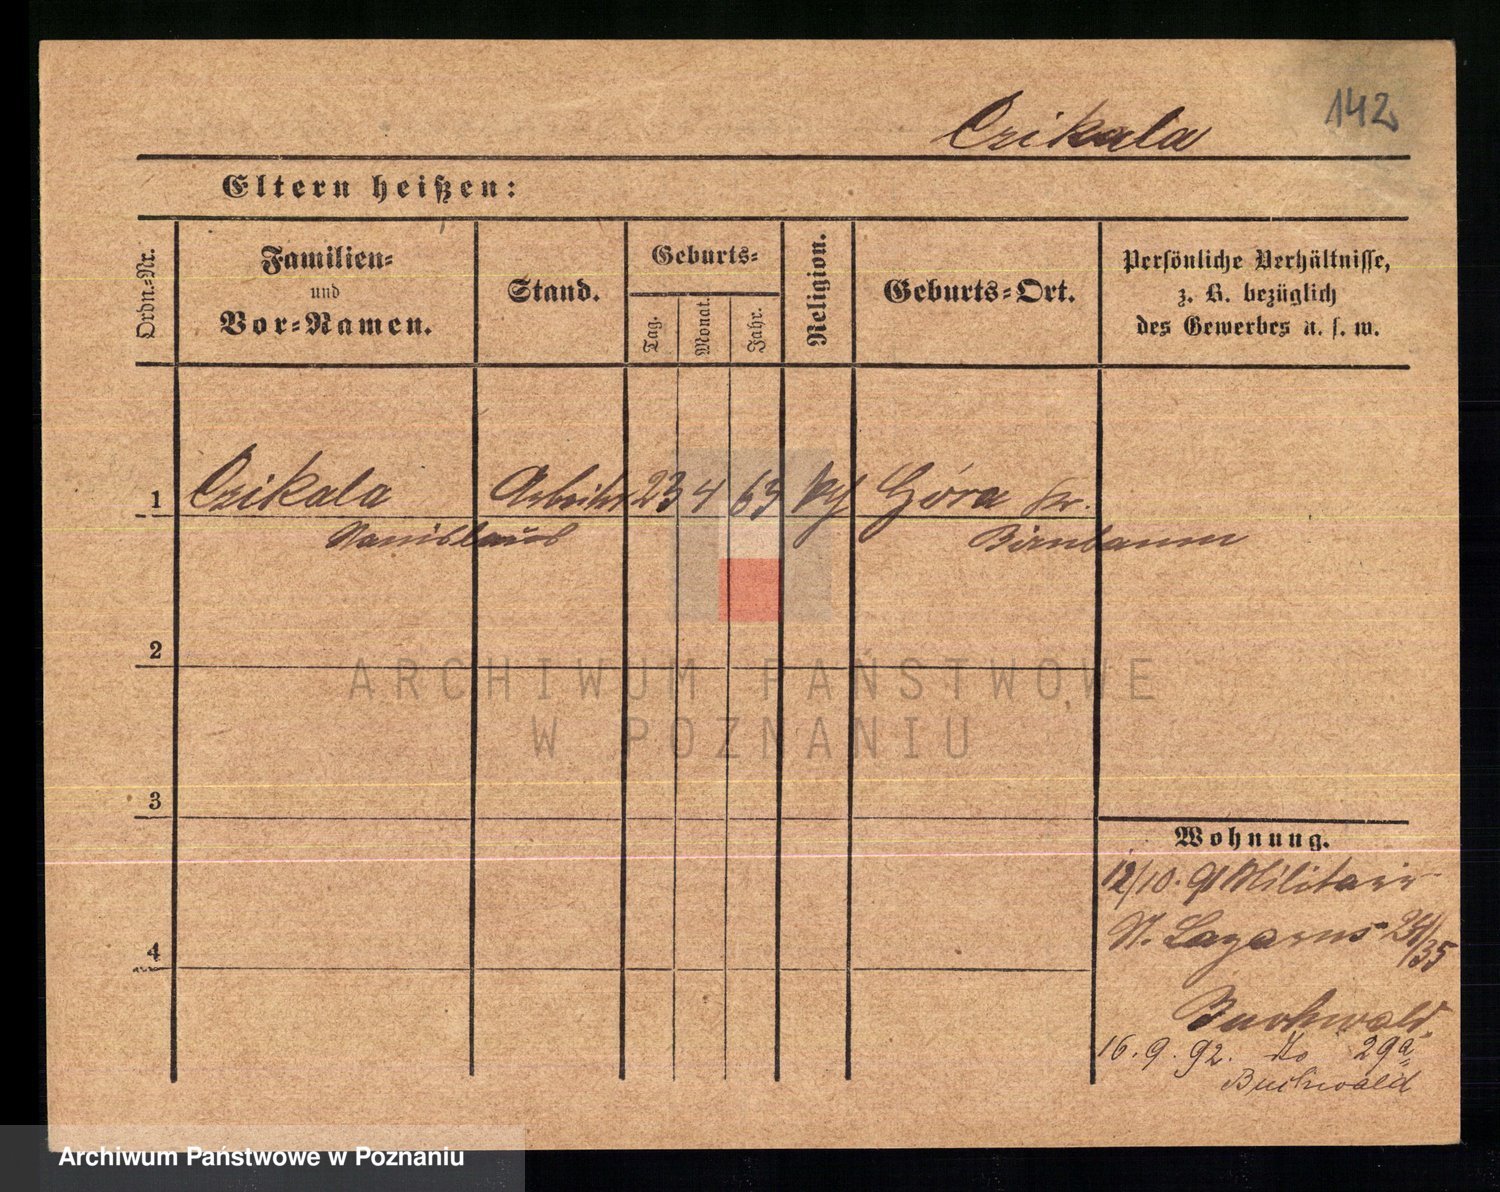 142
Czikala
Eltern heißen:
Ordn.-Nr.
Familien-
und
Vor-Namen.
Stand.
Geburts-
Tag.
Monat.
Jahr.
Religion.
Geburts-Ort.
Persönliche Verhältnisse,
z. B. bezüglich
des Gewerbes u. s. w.
1 Czikala Arbeiter 23 4 63 kth Góra Kr.
Stanislaus Birnbaum
2
3
4
Wohnung.
12/10. 91 Militair
St. Lazarus 34/35
Buchwald.
16. 9. 92. do 29a
Buchwald
ARCHIWUM PAŃSTWOWE
W POZNANIU
Archiwum Państwowe w Poznaniu